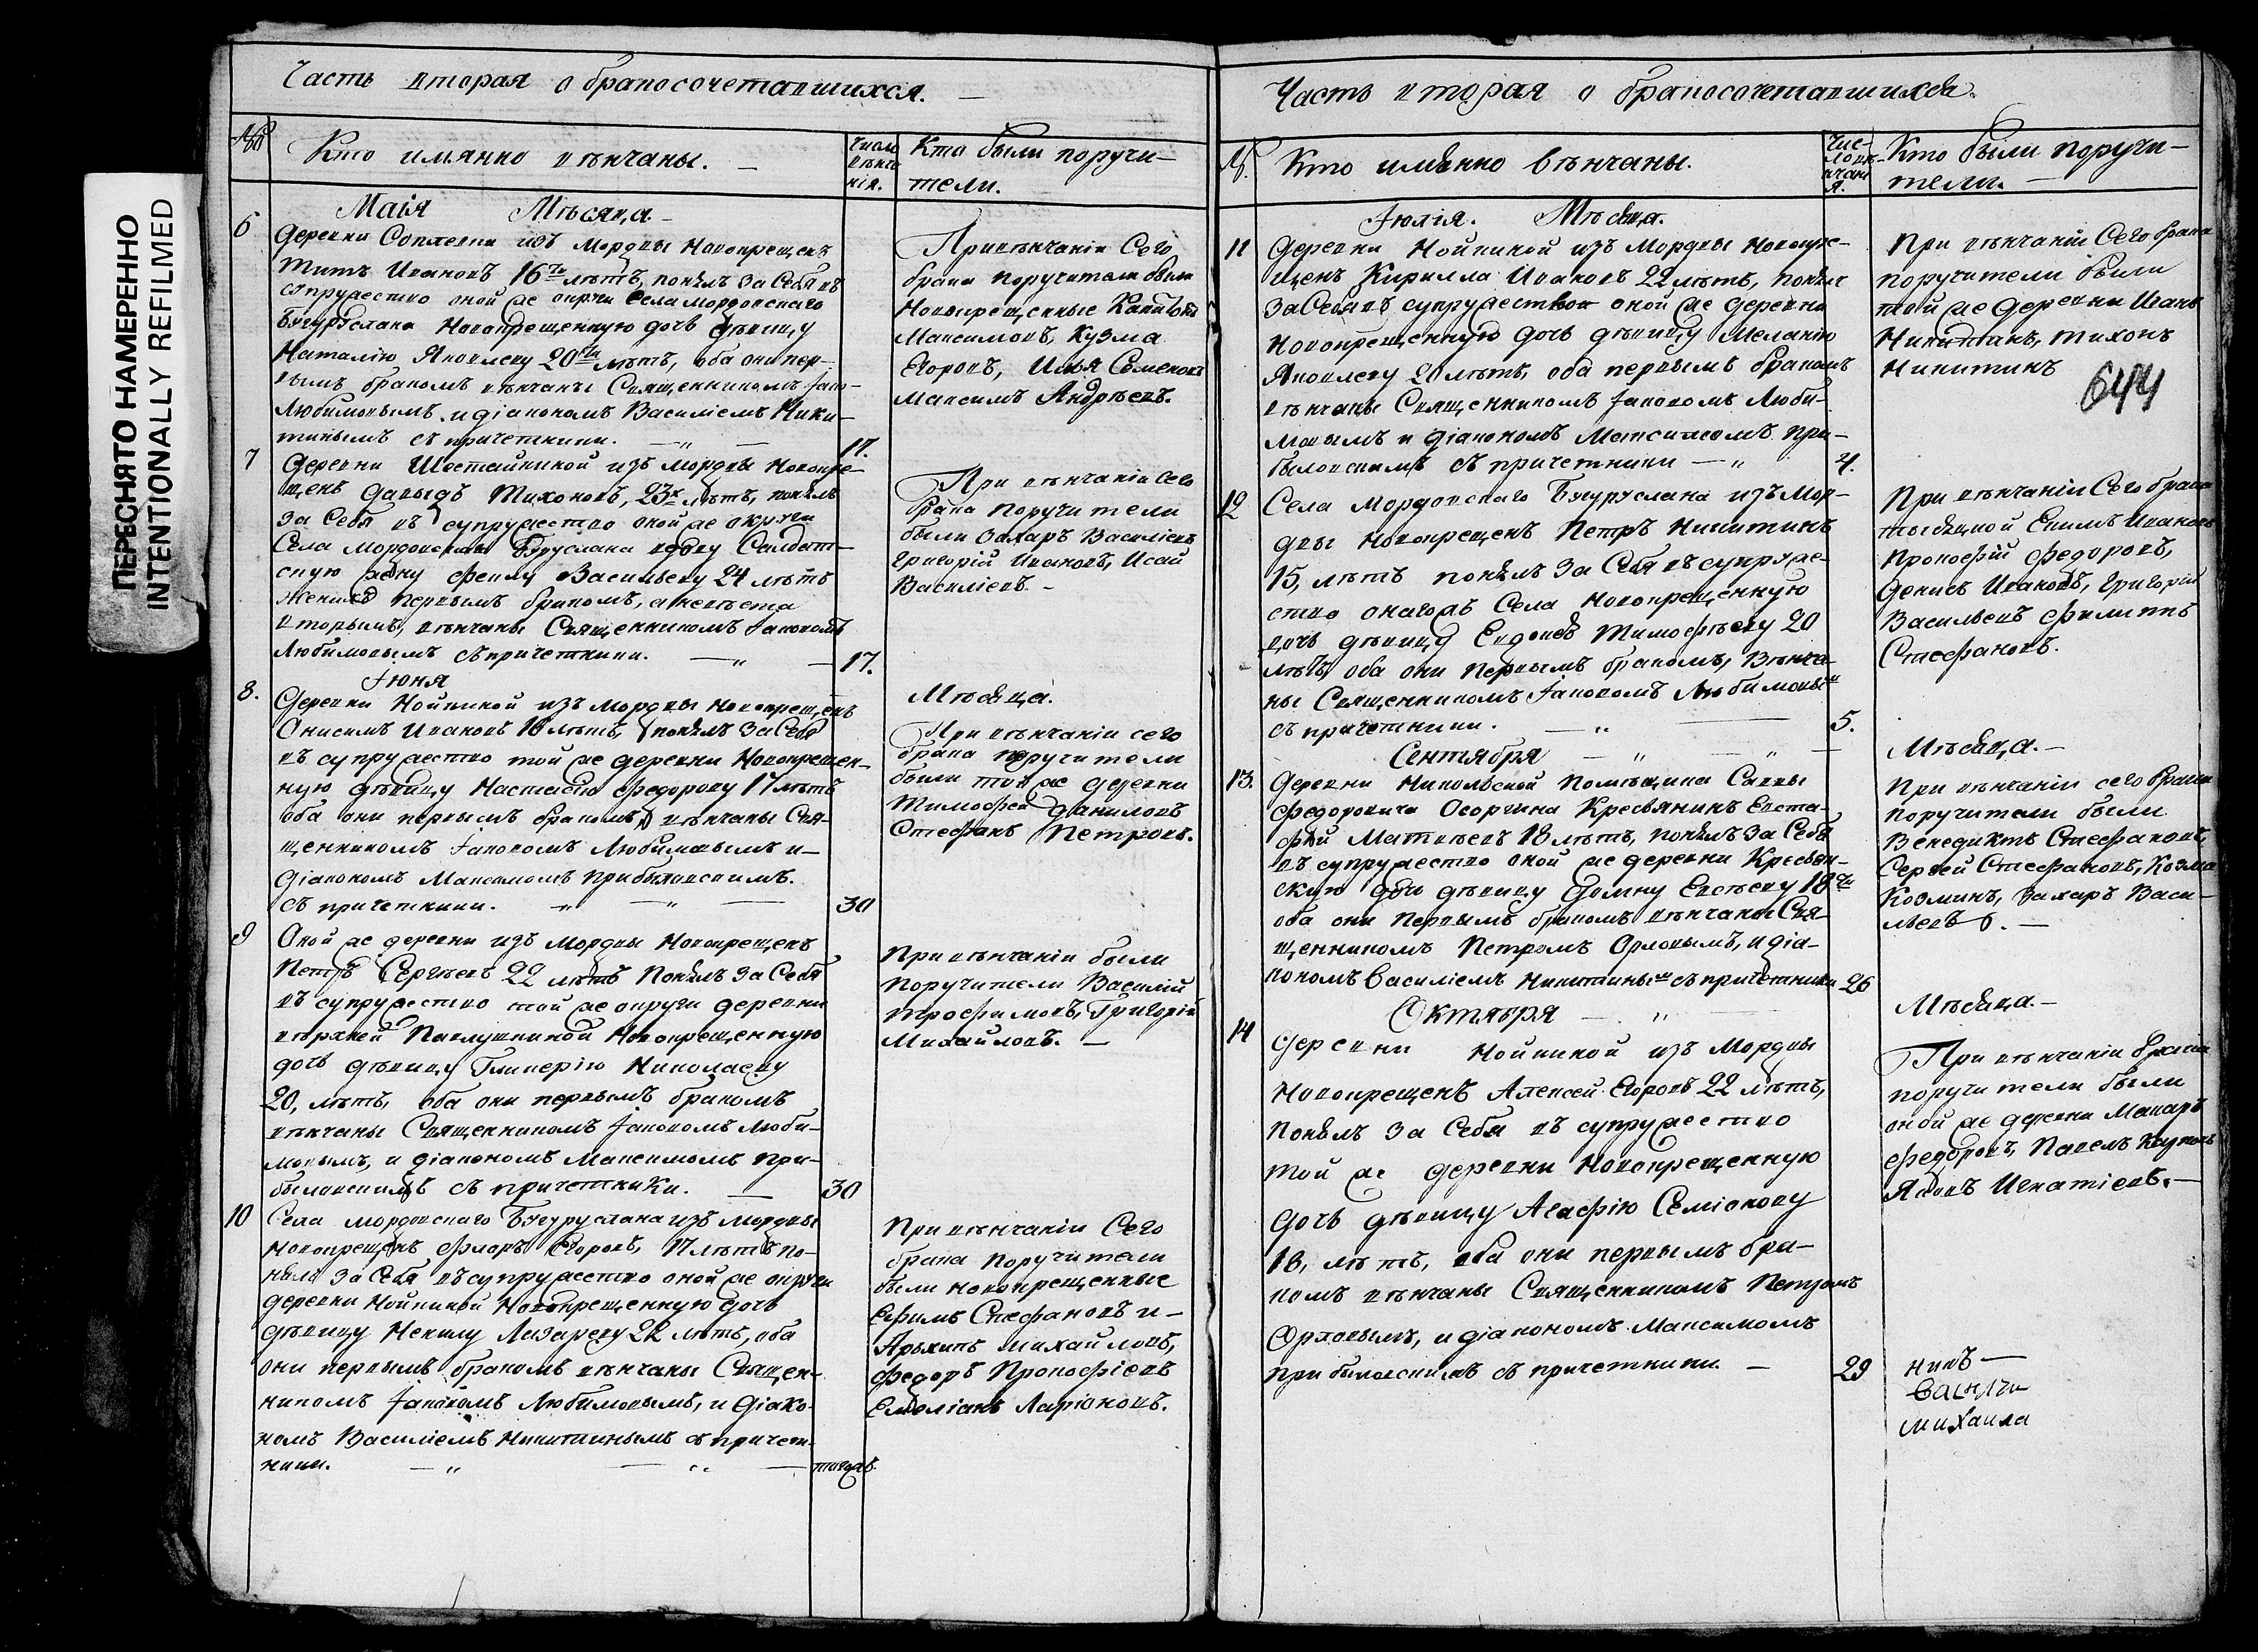 ПЕРЕСНЯТО НАМЕРЕННО
INTENTIONALLY REFILMED
Часть вторая о бракосочетавшихся.
№
Кто имянно венчаны.
Число венча нія.
Кто были поручи-
тели.
Маія Мѣсяца
6
деревни Соплевки изъ мордвы новокрещенъ
Титъ Ивановъ 16ти лѣтъ, понялъ за Себя въ
супружество оной же округи Села мордовскаго
Бугуруслана Новокрещенную дочь дѣвицу
Наталію Яковлеву 20ти лѣтъ, оба они пер-
вымъ бракомъ венчаны Священникомъ Іако-
Любимовымъ и діакономъ Василіемъ Ники-
тинымъ съ причетники.
17.
При венчаніи Сего
брака поручители были
Новокрещенные
Максимовъ, Кузма
Егоровъ, Илья Семеновъ
Максимъ Андрѣевъ.
7
деревни Шестайкиной изъ мордвы Новокре-
щенъ давыдъ Тихоновъ, 23х лѣтъ, понялъ
за Себя въ супружество оной же округи
Села мордовскаго Бугуруслана вдову Салдат-
скую жену Феклу Васильеву 24 лѣтъ
женихъ первымъ бракомъ, а невѣста
вторымъ, венчаны Священникомъ Іаковомъ
Любимовымъ съ причетники.
17.
При венчаніи Сего
брака поручители
были Захаръ Василіевъ
Григорій Ивановъ, Исай
Василіевъ.
Іюня
Мѣсяца.
8.
деревни Нойкиной изъ мордвы новокрещенъ
Онисимъ Ивановъ 18 лѣтъ, понялъ за Себя
въ супружество той же деревни Новокрещен-
ную дѣвицу Настасью Федорову 17 лѣтъ
оба они первымъ бракомъ, венчаны Свя-
щенникомъ Іаковомъ Любимовымъ и
діакономъ Максимомъ Прибыловскимъ.
съ причетники.
30
При венчаніи сего
брака поручители
были той же деревни
Тимофей Даниловъ
Стефанъ Петровъ.
9
Оной же деревни изъ мордвы Новокрещенъ
Петръ Сергѣевъ 22 лѣтъ Понялъ за Себя
въ супружество той же округи деревни
верхней Павлушкиной Новокрещенную
дочь дѣвицу Гликерію Николаеву
20, лѣтъ, оба они первымъ бракомъ
венчаны Священникомъ Іаковомъ Люби-
мовымъ, и діакономъ Максимомъ при-
быловскимъ съ причетники.
30
При венчаніи были
поручители Василій
Трофимовъ, Григорій
Михайловъ.
10
Села мордовскаго Бугуруслана изъ мордвы
Новокрещенъ Флоръ Егоровъ, 17 лѣтъ по-
нялъ за Себя въ супружество оной же округи
деревни Нойкиной Новокрещенную дочь
дѣвицу Некилу Лазареву 22 лѣтъ, оба
они первымъ бракомъ венчаны Священ-
никомъ Іаковомъ Любимовымъ, и діако-
номъ Василіемъ Никитинымъ съ причет-
ники.
тогожъ
При венчаніи Сего
брака Поручители
были новокрещенные
Ефимъ Стефановъ и
Архипъ михайловъ,
Федоръ Прокофіевъ
Емеліанъ Ларіоновъ.
Часть вторая о бракосочетавшихся.
№.
Кто имянно венчаны.
Чис-
ло ве-
нчані
я.
Кто были поручи-
тели.
Іюлія. Мѣсяца.
11
деревни Нойкиной изъ мордвы новокре-
щенъ Кирилла Ивановъ 22 лѣтъ, понялъ
за Себя въ супружество оной же деревни
новокрещенную дочь дѣвицу Меланію
Яковлеву 20 лѣтъ, оба первымъ бракомъ
венчаны Священникомъ Іаковомъ Люби-
мовымъ и діакономъ Максимомъ при-
быловскимъ съ причетники
4.
При венчаніи Сего брака
поручители были
той же деревни Иванъ
Никитинъ, тихонъ
Никитинъ
644
12
Села мордовскаго Бугуруслана изъ мор-
двы новокрещенъ Петръ Никитинъ
15, лѣтъ понялъ за Себя въ супруже-
ство онагожъ Села новокрещенную
дочь дѣвицу Евдокею Тимофѣеву 20
лѣтъ, оба они первымъ бракомъ, венча-
ны Священникомъ Іаковомъ Любимовым
съ причетники.
5.
При венчаніи Сего брака
тысяцкой Екимъ Ивановъ
Прокофій Федоровъ,
денисъ Ивановъ, Григорій
Васильевъ Филиппъ
Стефановъ.
Сентября
Мѣсяца.
13.
деревни Никольской помѣщика Саввы
Федоровича Осоргина Кресьянинъ Евста-
фей Матвѣевъ 18 лѣтъ, понялъ за Себя
въ супружество оной же деревни Кресьян-
скую дочь дѣвицу Домну Евсѣеву 18ти
оба они первымъ бракомъ венчаны Свя-
щенникомъ Петромъ Орловымъ, и діа-
кономъ Василіемъ Никитиным съ причетники
26
При венчаніи сего брака
поручители были
Венедиктъ Стефановъ,
Сергей Стефановъ, Козма
Козминъ, Захаръ Васи-
льевъ.
Октября
Мѣсяца
14
деревни Нойкиной изъ мордвы
Новокрещенъ Алексей Егоровъ 22 лѣтъ,
понялъ за Себя въ супружество
той же деревни Новокрещенную
дочь дѣвицу Агафію Семіонову
18, лѣтъ, оба они первымъ бра-
комъ венчаны Священникомъ Петромъ
Орловымъ, и діакономъ Максимомъ
прибыловскимъ съ причетники
29
При венчаніи брака
поручители были
оной же деревни Макаръ
Федоровъ, Павелъ
Яковъ Игнатіевъ.
михаила